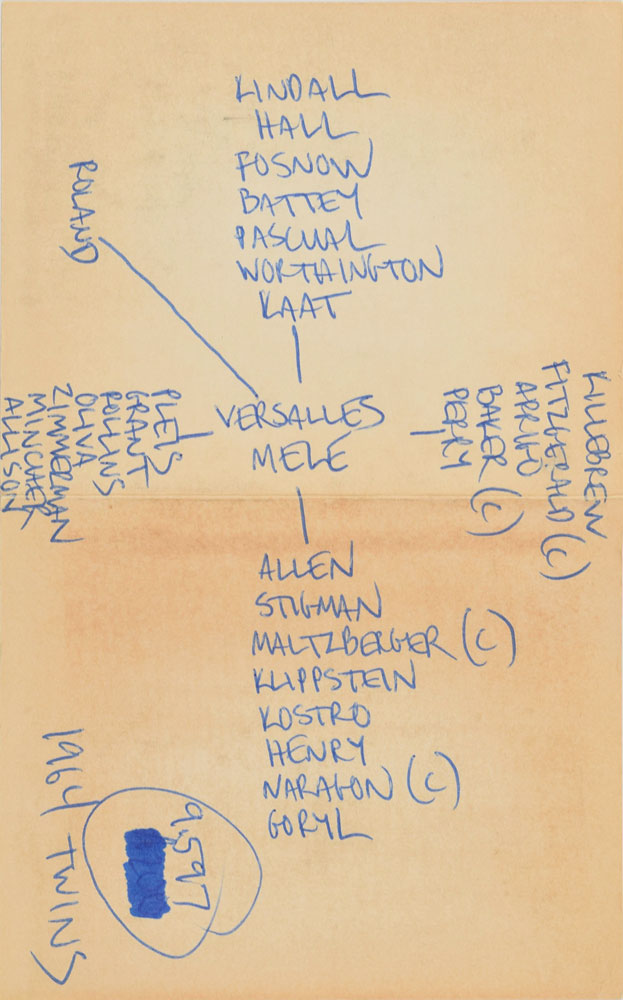 KINDALL
HALL
FOSNOW
BATTEY
PASCUAL
WORTHINGTON
KAAT
ROLAND
VERSALLES
MELE
PLEIS
GRANT
ROLLINS
OLIVA
ZIMMERMAN
MINCHER
ALLISON
KILLEBREW
FITZGERALD (C)
ARRIGO
BAKER (C)
PERRY
ALLEN
STIGMAN
MALTZBERGER (C)
KLIPPSTEIN
KOSTRO
HENRY
NARAGON (C)
GORYL
1964 TWINS
9,597